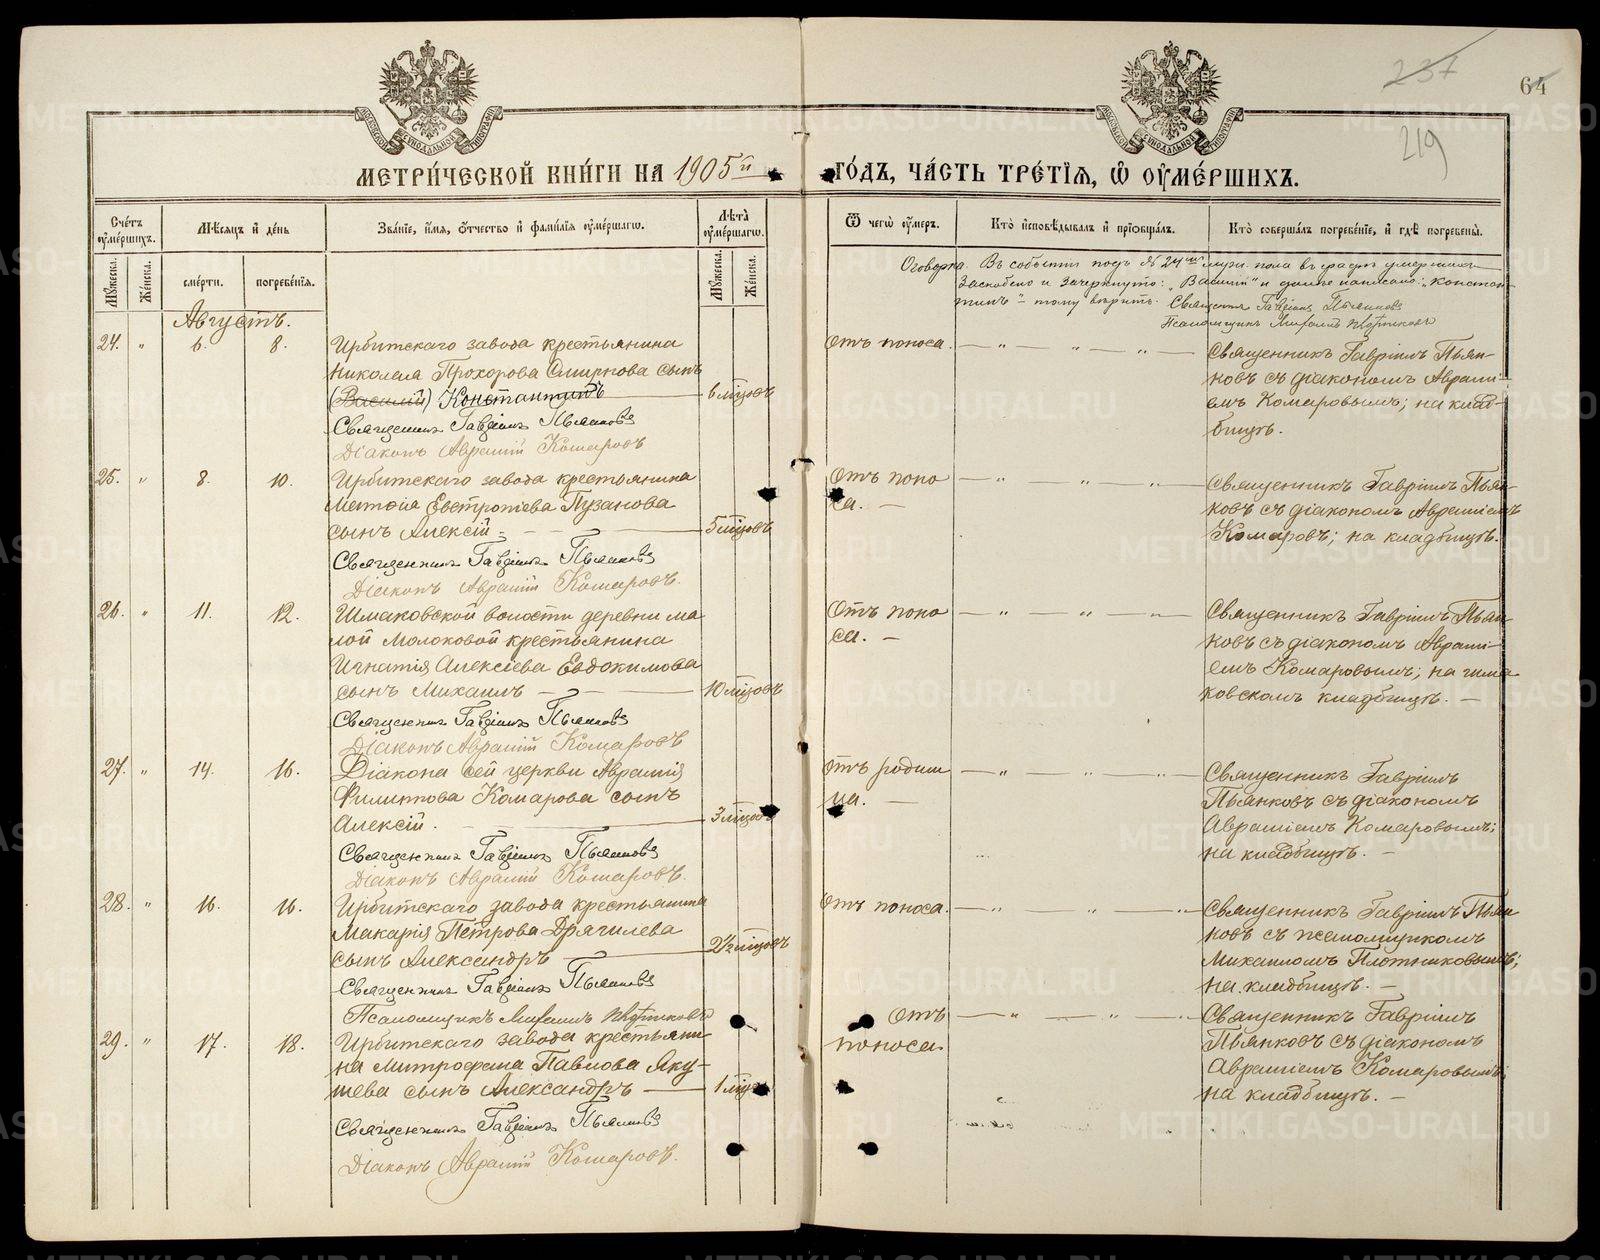 237
64
219
МЕТРИ́ЧЕСКОЙ КНИ́ГИ НА 1905й ГО́ДЪ, ЧА́СТЬ ТРЕ́ТІѦ, Ѿ ОУМЕ́РШИХЪ.
Сче́тъ оумéршихъ.
Мѣ́сяцъ и де́нь
Зва́нїе, и́мѧ, о́тчество и фами́лїѧ оуме́ршагѡ.
Лѣ́та оуме́ршагѡ.
Ѿ чегѡ̀ оу́меръ.
Кто̀ исповѣ́дывалъ и прїобща́лъ.
Кто̀ соверша́лъ погребе́нїе, и гдѣ̀ погребены̀.
Му́жеска.
Же́нска.
сме́рти.
погребе́нїѧ.
Му́жеска.
Же́нска.
Оговорка. Въ событіи подъ № 24мъ муж. пола въ графѣ умершихъ
Заскоблено и зачеркнуто: „Василій" и далѣе написано: „Констан-
тинъ" – тому вѣрить. Священникъ Гавріилъ Пьянковъ
Псаломщикъ Михаилъ Плотниковъ
Августъ.
24. " 6. 8. Ирбитскаго завода крестьянина
Николая Прохорова Смирнова сынъ
(Василій) Константинъ 6 мѣсцовъ
Священникъ Гавріилъ Пьянковъ
Діаконъ Аврамій Комаровъ
Отъ поноса. — " — " — " —
Священникъ Гавріилъ Пьян-
ковъ съ діакономъ Аврамі-
емъ Комаровымъ; на клад-
бищѣ.
25. " 8. 10. Ирбитскаго завода крестьянина
Матѳія Евстропіева Пузанова
сынъ Алексій 5 мѣсцовъ
Священникъ Гавріилъ Пьянковъ
Діаконъ Аврамій Комаровъ.
Отъ поно
са. — — " — " — " —
Священникъ Гавріилъ Пьян-
ковъ съ діакономъ Авраміемъ
Комаровъ; на кладбищѣ.
26. " 11. 12. Шмаковской волости деревни ма
лой Молоковой крестьянина
Игнатія Алексіева Евдокимова
сынъ Михаилъ — — 10 мѣсцовъ
Священникъ Гавріилъ Пьянковъ
Діаконъ Аврамій Комаровъ
Отъ поно
са. — — " — " — " —
Священникъ Гавріилъ Пьян
ковъ съ діакономъ Аврамі-
емъ Комаровымъ; на шма
ковскомъ кладбищѣ. —
27. " 14. 16. Діакона сей церкви Аврамія
Филиппова Комарова сынъ
Алексій. 3 мѣсцов
Священникъ Гавріилъ Пьянковъ
Діаконъ Аврамій Комаровъ.
отъ родим
ца. — — " — " — " —
Священникъ Гавріилъ
Пьянковъ съ діакономъ
Авраміемъ Комаровымъ;
на кладбищѣ. —
28. " 16. 16. Ирбитскаго завода крестьянина
Макарія Петрова Дрягилева
сынъ Александръ 2½ мѣсцовъ
Священникъ Гавріилъ Пьянковъ
Псаломщикъ Михаилъ Плотниковъ
Отъ поноса. — " — " — " —
Священникъ Гавріилъ Пьян
ковъ съ псаломщикомъ
Михаиломъ Плотниковымъ;
на кладбищѣ. —
29. " 17. 18. Ирбитскаго завода крестьяни
на Митрофана Павлова Яку-
шева сынъ Александръ — 1 мѣсцъ
Священникъ Гавріилъ Пьянковъ
Діаконъ Аврамій Комаровъ.
Отъ
поноса. — " — " — " —
Священникъ Гавріилъ
Пьянковъ съ діакономъ
Авраміемъ Комаровымъ;
на кладбищѣ. —
METRIKI.GASO-URAL.RU